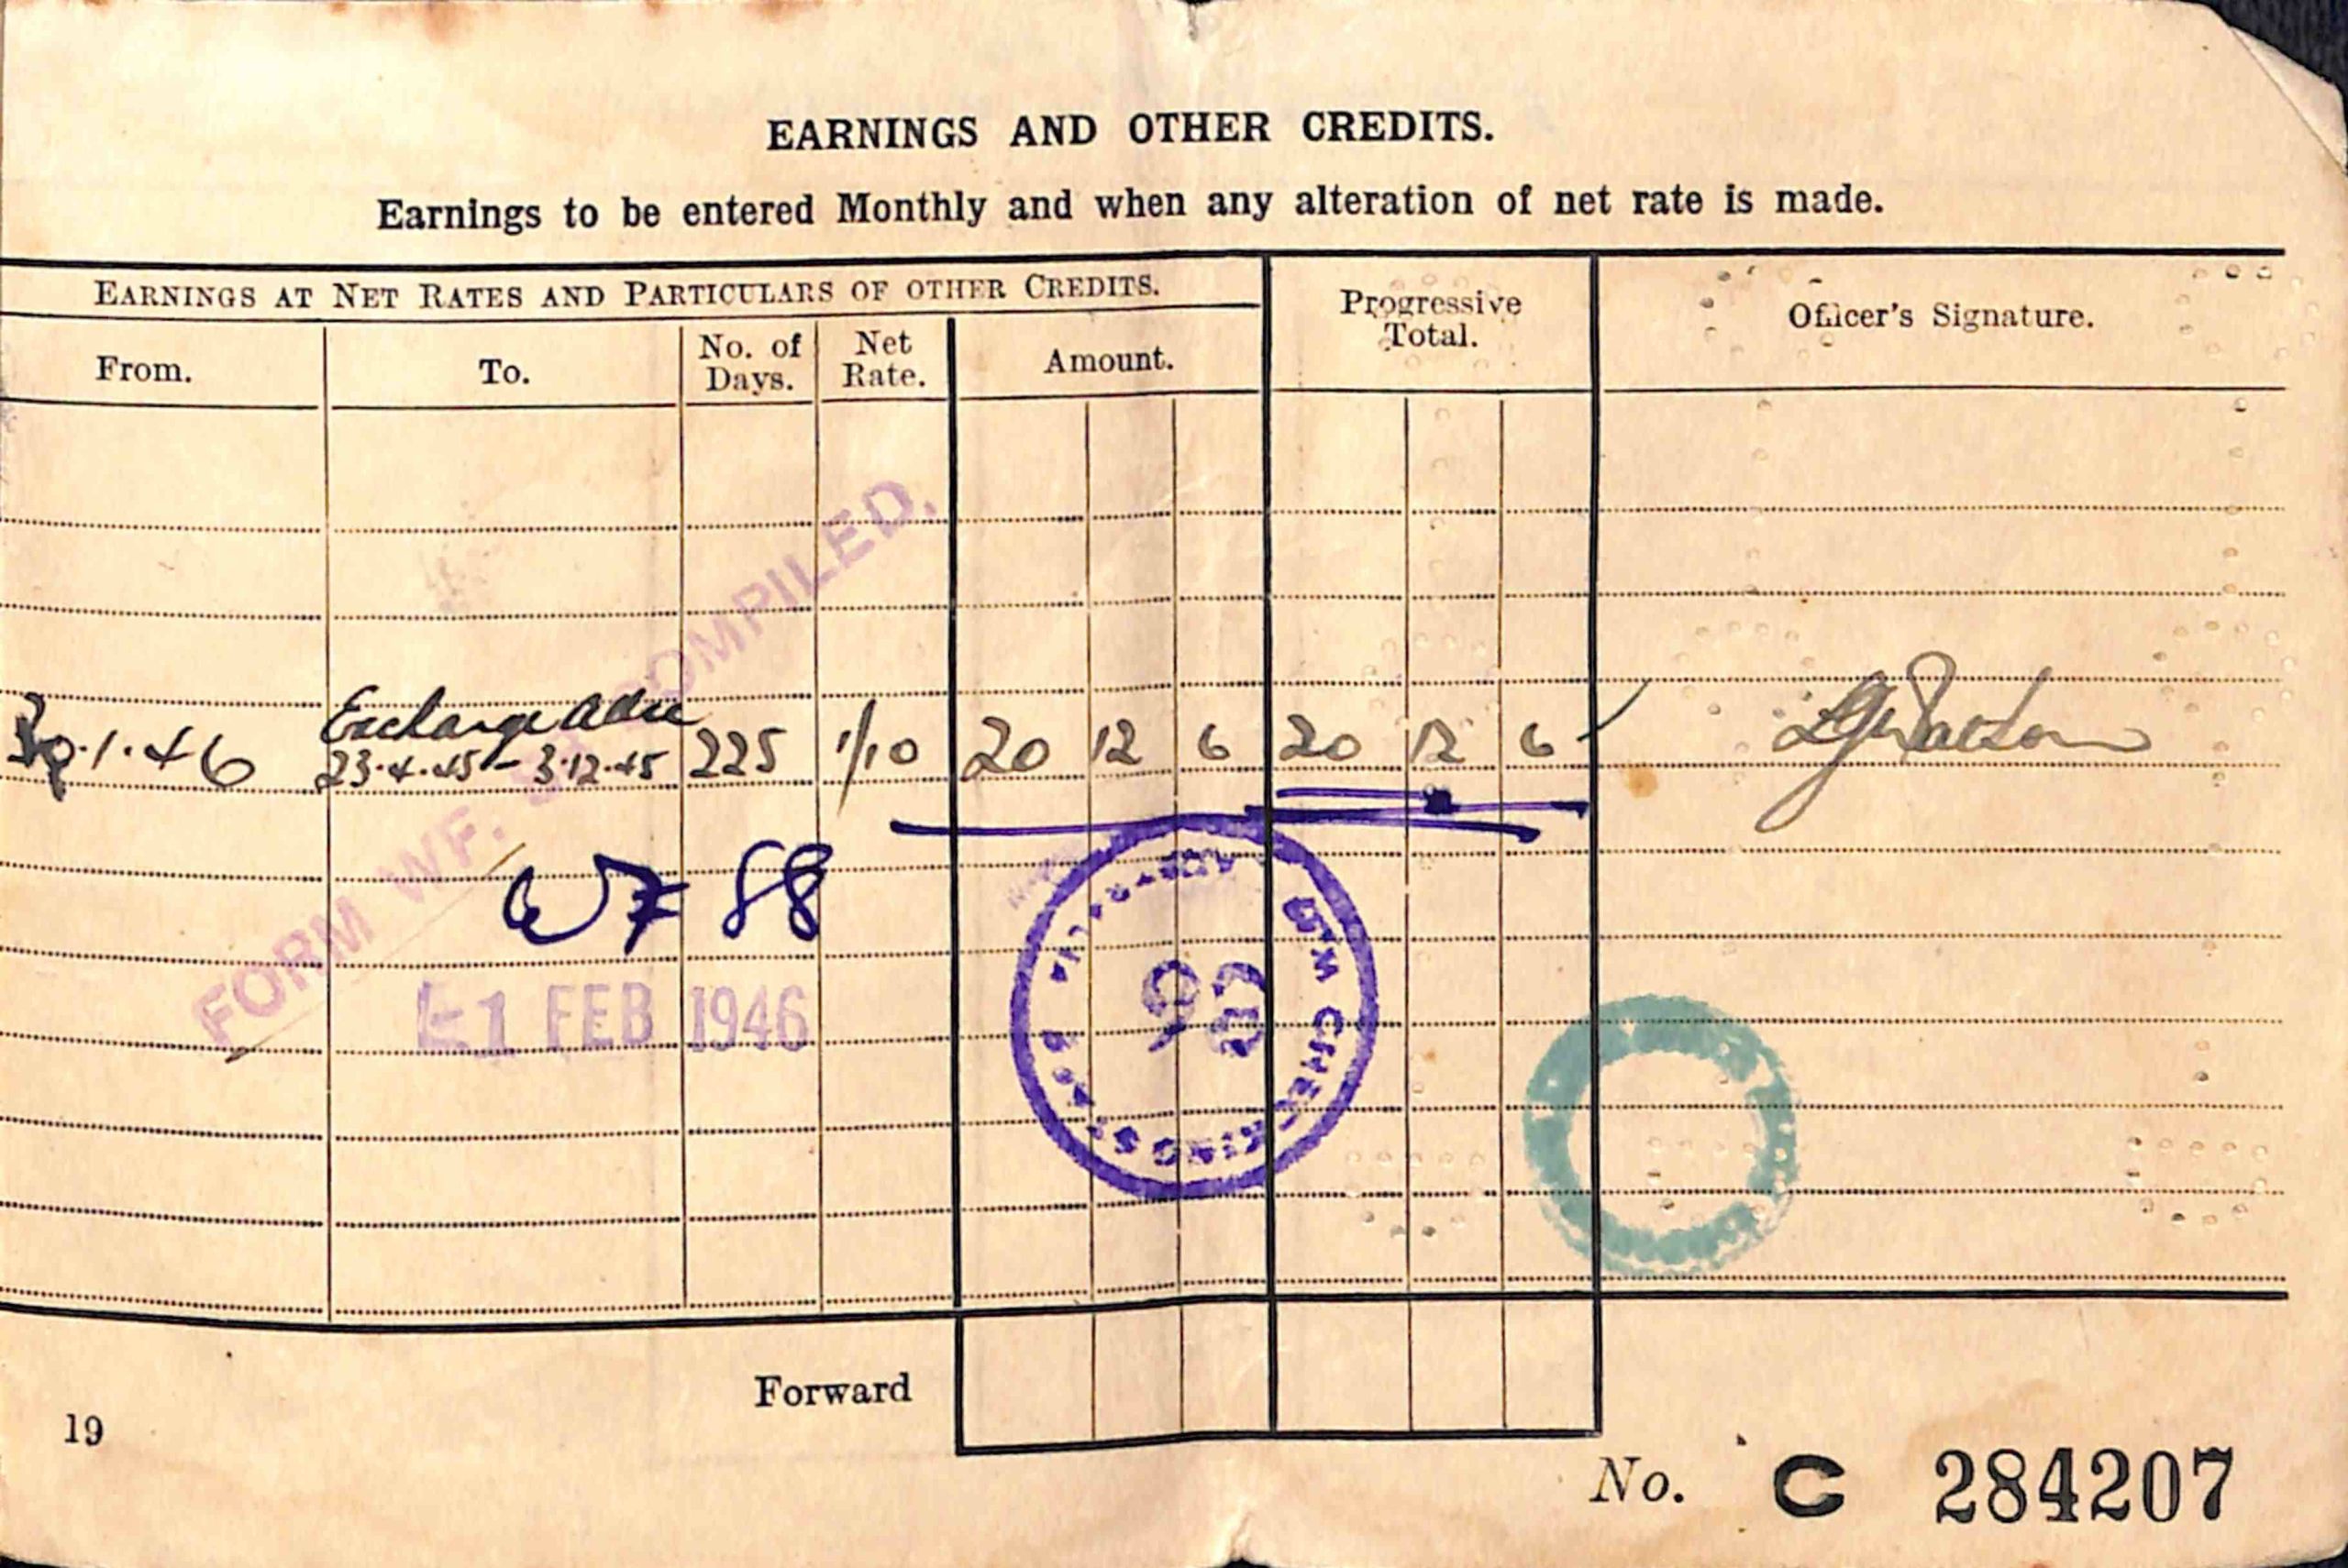 EARNINGS AND OTHER CREDITS.
Earnings to be entered Monthly and when any alteration of net rate is made.
EARNINGS AT NET RATES AND PARTICULARS OF OTHER CREDITS.
Progressive Total.
Officer's Signature.
From.
To.
No. of Days.
Net Rate.
Amount.
Exchange
.1.46 23.4.45 - 3.12.45 225 1/10 20 12 6 20 12 6
FORM WF. COMPILED.
WF 88
1 FEB 1946
Forward
19
No. C 284207